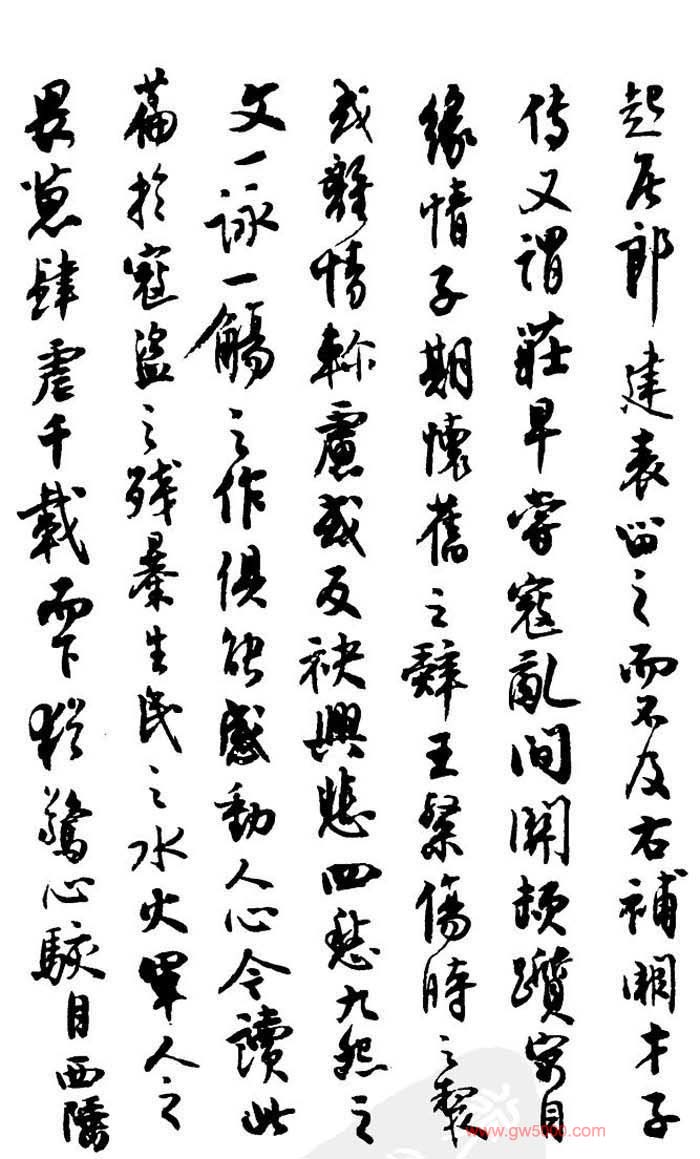 起居郎建表留之而不及右補闕才子
傳又謂莊早嘗寇亂間關頓躓寓目
緣情子期懷舊之辭王粲傷時之製
或離情軫慮或反袂興悲四愁九怨之
文一詠一觴之作俱能感動人心今讀此
篇於寇盜之殘暴生民之水火軍人之
畏葸肆虐千載而下猶驚心駭目西